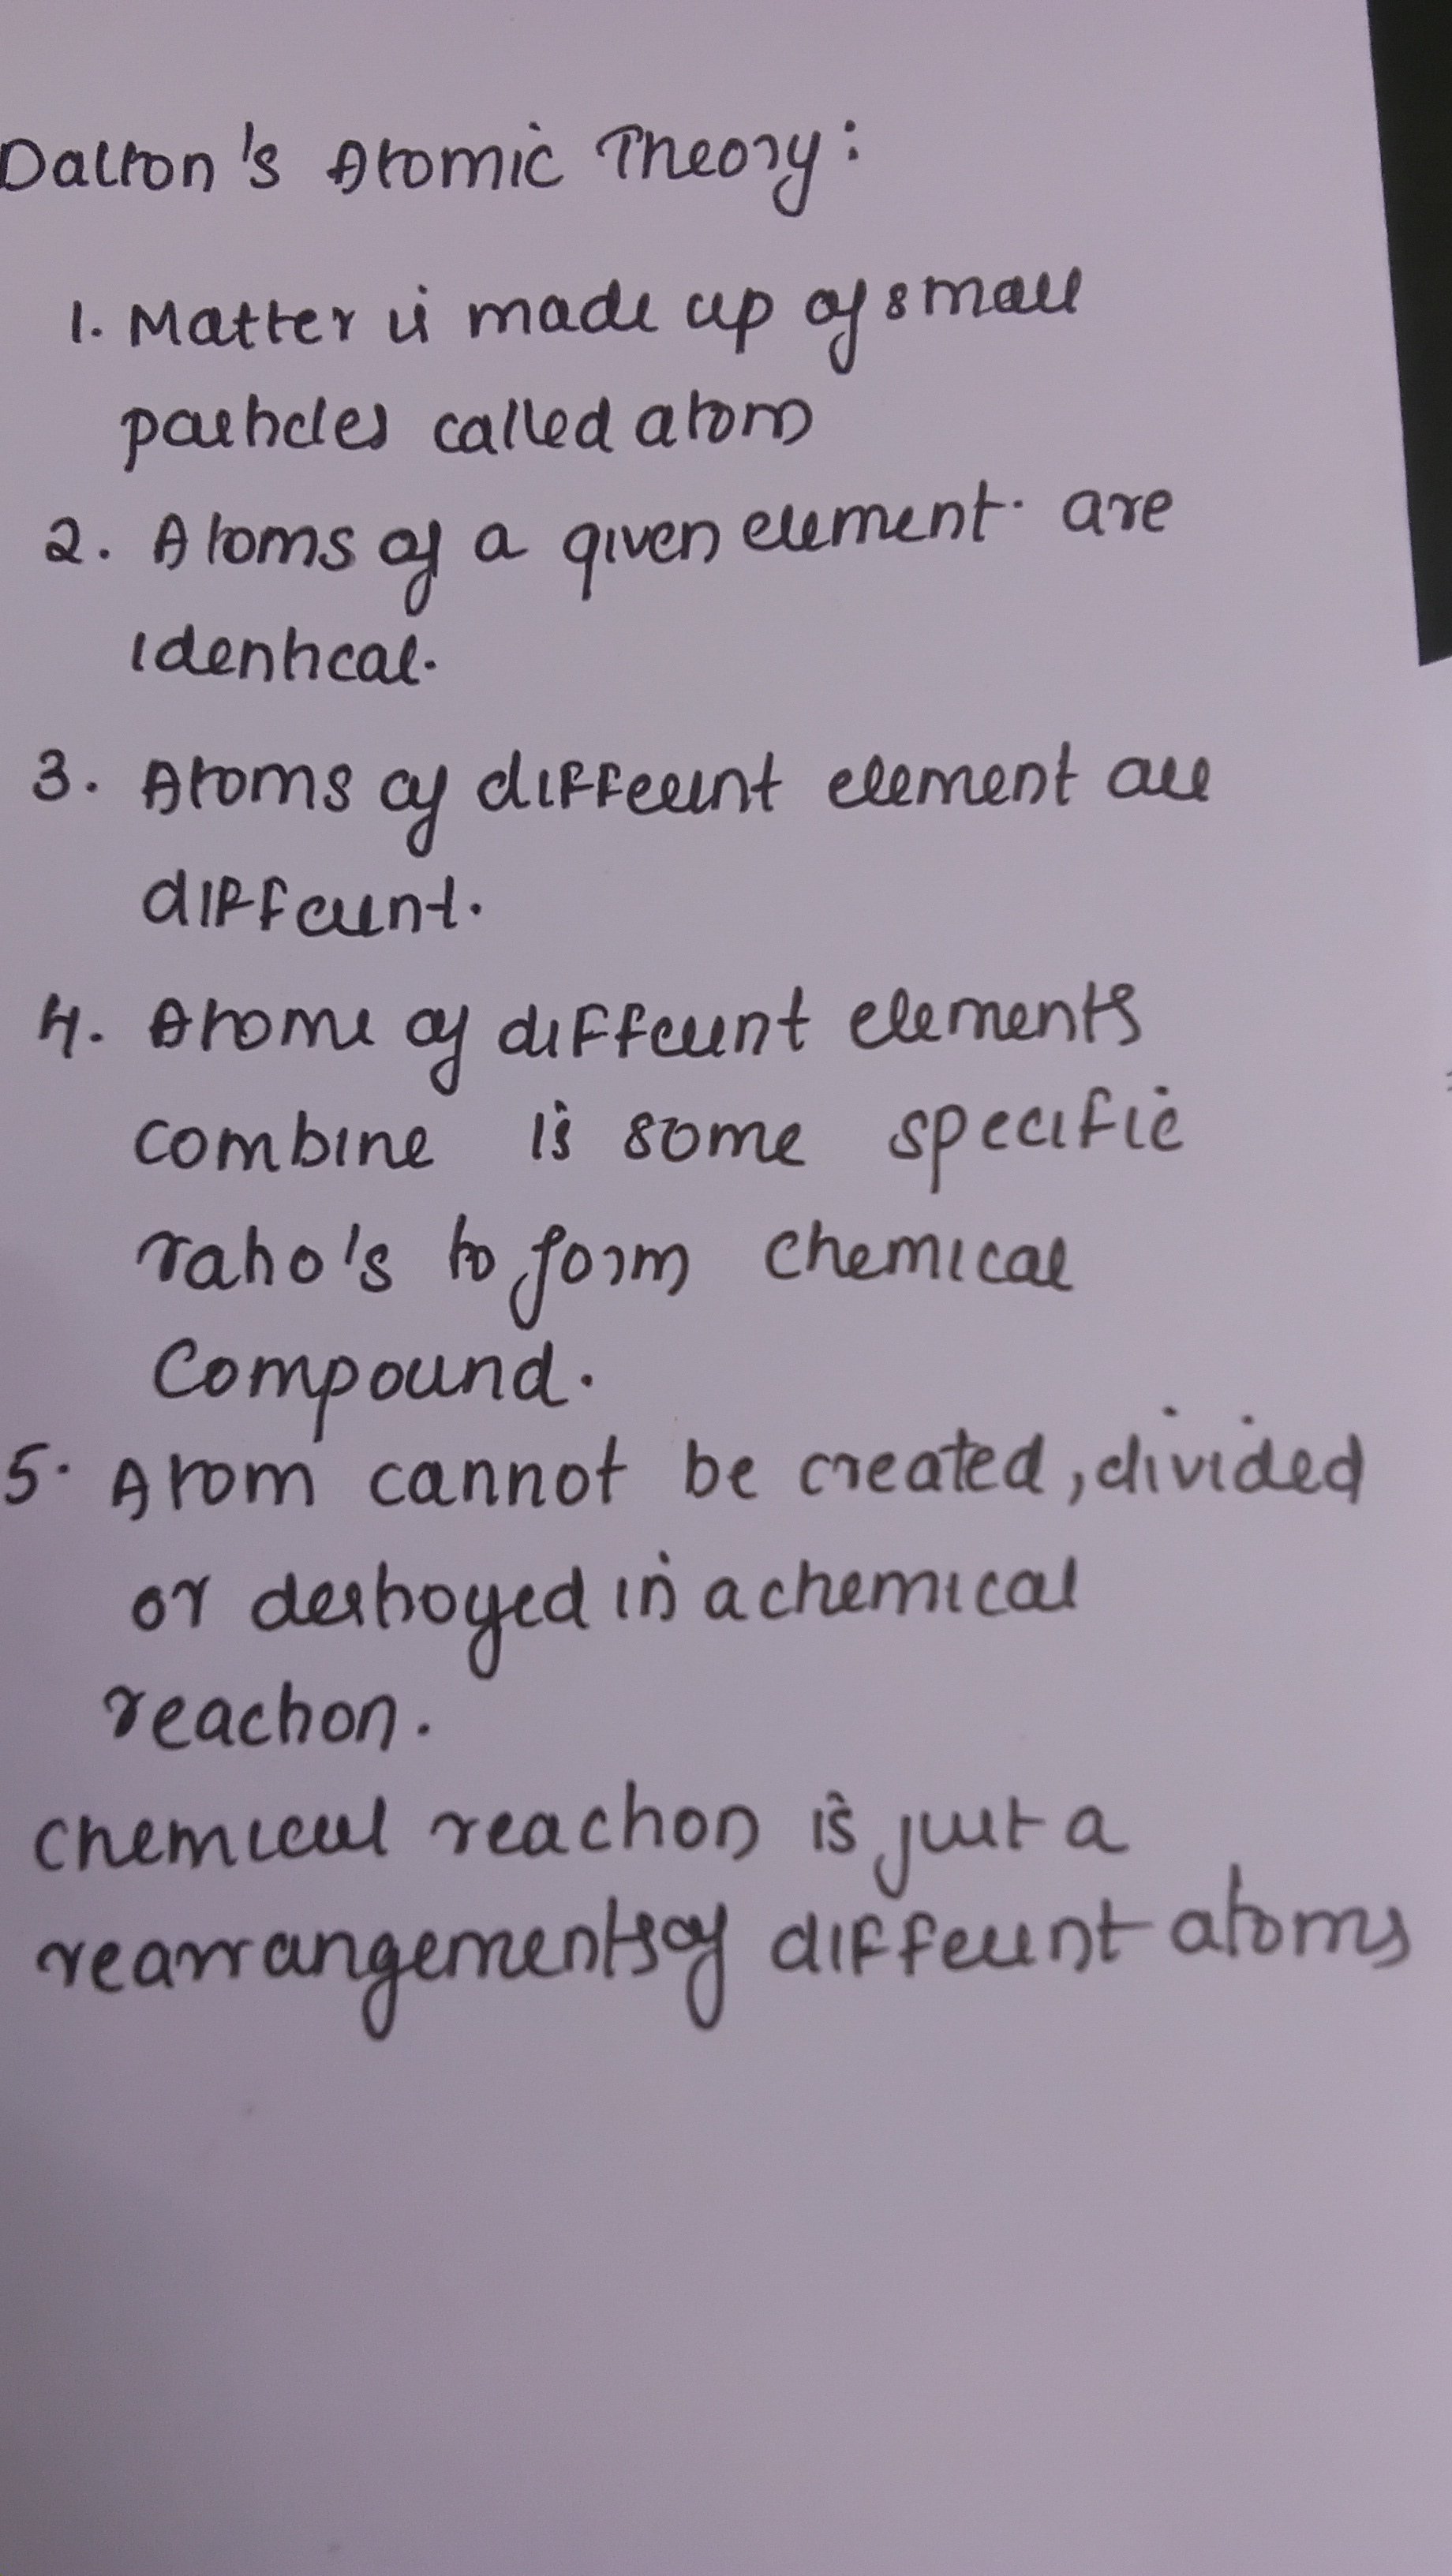 Dalton's Atomic Theory:
1. Matter is made up of small
particles called atom
2. Atoms of a given element are
identical.
3. Atoms of different element are
different.
4. Atoms of different elements
combine is some specific
ratio's to form chemical
compound.
5. Atom cannot be created, divided
or destroyed in a chemical
reaction.
chemical reaction is just a
rearrangements of different atoms